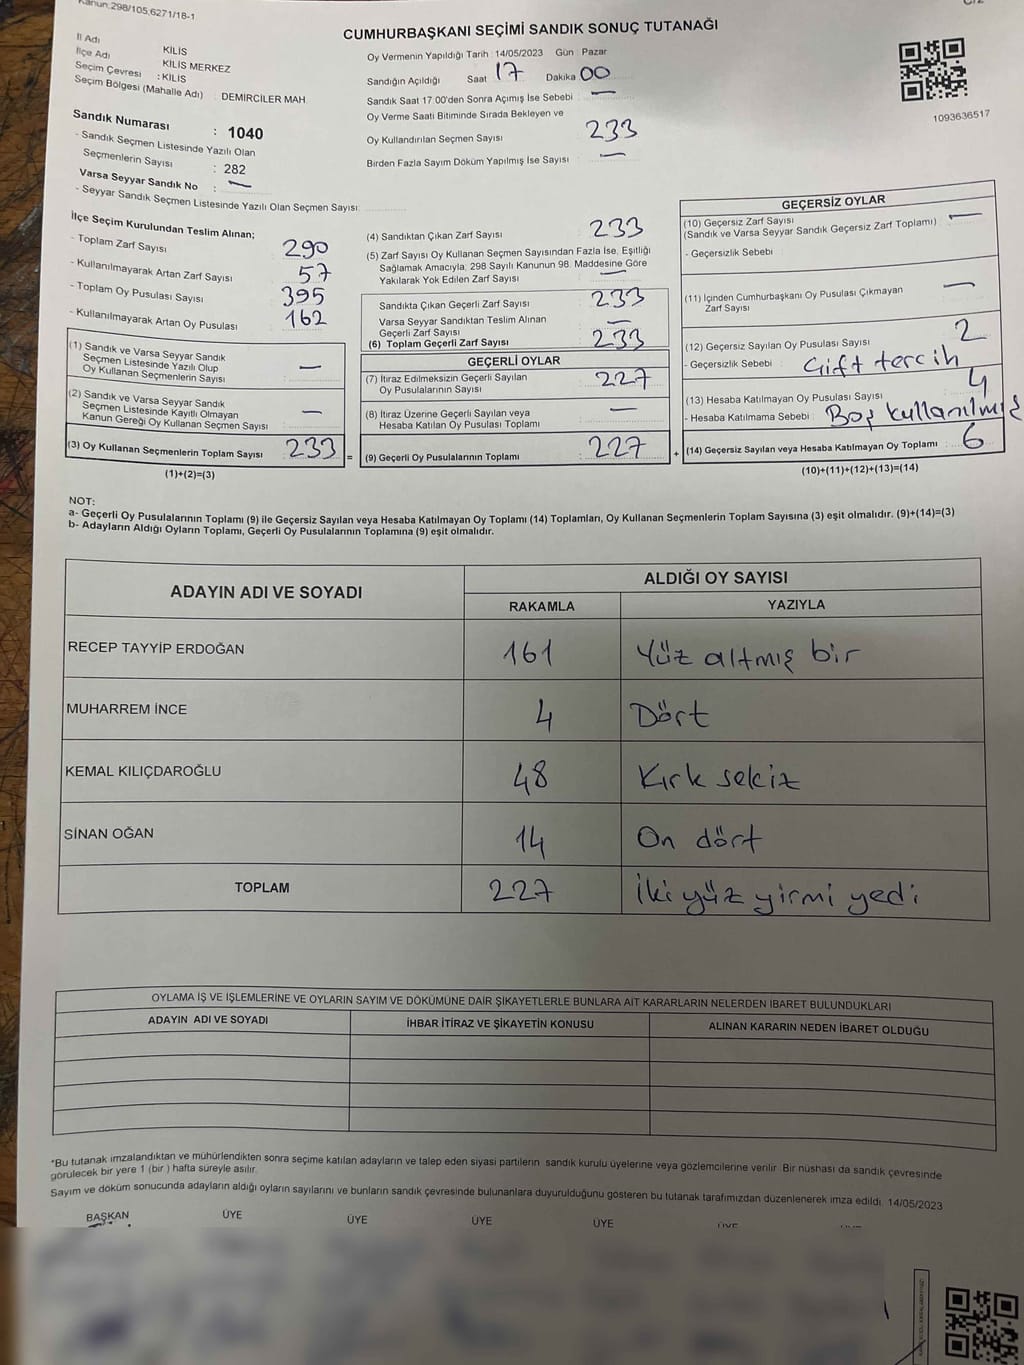 Kanun:298/105,6271/18-1
CUMHURBAŞKANI SEÇİMİ SANDIK SONUÇ TUTANAĞI
İl Adı KİLİS
İlçe Adı KİLİS MERKEZ
Seçim Çevresi : KİLİS
Seçim Bölgesi (Mahalle Adı) DEMİRCİLER MAH.
Sandık Numarası : 1040
- Sandık Seçmen Listesinde Yazılı Olan
Seçmenlerin Sayısı : 282
Varsa Seyyar Sandık No : —
- Seyyar Sandık Seçmen Listesinde Yazılı Olan Seçmen Sayısı:
Oy Vermenin Yapıldığı Tarih : 14/05/2023 Gün : Pazar
Sandığın Açıldığı Saat 17 Dakika 00
Sandık Saat 17.00'den Sonra Açımış İse Sebebi : —
Oy Verme Saati Bitiminde Sırada Bekleyen ve
Oy Kullandırılan Seçmen Sayısı : 233
Birden Fazla Sayım Döküm Yapılmış İse Sayısı : —
1093636517
İlçe Seçim Kurulundan Teslim Alınan;
- Toplam Zarf Sayısı : 290
- Kullanılmayarak Artan Zarf Sayısı : 57
- Toplam Oy Pusulası Sayısı : 395
- Kullanılmayarak Artan Oy Pusulası : 162
(1) Sandık ve Varsa Seyyar Sandık
Seçmen Listesinde Yazılı Olup
Oy Kullanan Seçmenlerin Sayısı : —
(2) Sandık ve Varsa Seyyar Sandık
Seçmen Listesinde Kayıtlı Olmayan
Kanun Gereği Oy Kullanan Seçmen Sayısı : —
(3) Oy Kullanan Seçmenlerin Toplam Sayısı : 233 =
(1)+(2)=(3)
(4) Sandıktan Çıkan Zarf Sayısı : 233
(5) Zarf Sayısı Oy Kullanan Seçmen Sayısından Fazla İse, Eşitliği
Sağlamak Amacıyla, 298 Sayılı Kanunun 98. Maddesine Göre
Yakılarak Yok Edilen Zarf Sayısı : —
Sandıkta Çıkan Geçerli Zarf Sayısı : 233
Varsa Seyyar Sandıktan Teslim Alınan
Geçerli Zarf Sayısı : —
(6) Toplam Geçerli Zarf Sayısı : 233
GEÇERLİ OYLAR
(7) İtiraz Edilmeksizin Geçerli Sayılan
Oy Pusulalarının Sayısı : 227
(8) İtiraz Üzerine Geçerli Sayılan veya
Hesaba Katılan Oy Pusulası Toplamı : —
(9) Geçerli Oy Pusulalarının Toplamı : 227 +
GEÇERSİZ OYLAR
(10) Geçersiz Zarf Sayısı
(Sandık ve Varsa Seyyar Sandık Geçersiz Zarf Toplamı) : —
- Geçersizlik Sebebi :
(11) İçinden Cumhurbaşkanı Oy Pusulası Çıkmayan
Zarf Sayısı : —
(12) Geçersiz Sayılan Oy Pusulası Sayısı : 2
- Geçersizlik Sebebi : Çift tercih
(13) Hesaba Katılmayan Oy Pusulası Sayısı : 4
- Hesaba Katılmama Sebebi : Boş kullanılmış
(14) Geçersiz Sayılan veya Hesaba Katılmayan Oy Toplamı : 6
(10)+(11)+(12)+(13)=(14)
NOT:
a- Geçerli Oy Pusulalarının Toplamı (9) ile Geçersiz Sayılan veya Hesaba Katılmayan Oy Toplamı (14) Toplamları, Oy Kullanan Seçmenlerin Toplam Sayısına (3) eşit olmalıdır. (9)+(14)=(3)
b- Adayların Aldığı Oyların Toplamı, Geçerli Oy Pusulalarının Toplamına (9) eşit olmalıdır.
ADAYIN ADI VE SOYADI
ALDIĞI OY SAYISI
RAKAMLA YAZIYLA
RECEP TAYYİP ERDOĞAN 161 Yüz altmış bir
MUHARREM İNCE 4 Dört
KEMAL KILIÇDAROĞLU 48 Kırk sekiz
SİNAN OĞAN 14 On dört
TOPLAM 227 İki yüz yirmi yedi
OYLAMA İŞ VE İŞLEMLERİNE VE OYLARIN SAYIM VE DÖKÜMÜNE DAİR ŞİKAYETLERLE BUNLARA AİT KARARLARIN NELERDEN İBARET BULUNDUKLARI
ADAYIN ADI VE SOYADI İHBAR İTİRAZ VE ŞİKAYETİN KONUSU ALINAN KARARIN NEDEN İBARET OLDUĞU
*Bu tutanak imzalandıktan ve mühürlendikten sonra seçime katılan adayların ve talep eden siyasi partilerin sandık kurulu üyelerine veya gözlemcilerine verilir. Bir nüshası da sandık çevresinde
görülecek bir yere 1 (bir ) hafta süreyle asılır.
Sayım ve döküm sonucunda adayların aldığı oyların sayılarını ve bunların sandık çevresinde bulunanlara duyurulduğunu gösteren bu tutanak tarafımızdan düzenlenerek imza edildi. 14/05/2023
BAŞKAN ÜYE ÜYE ÜYE ÜYE